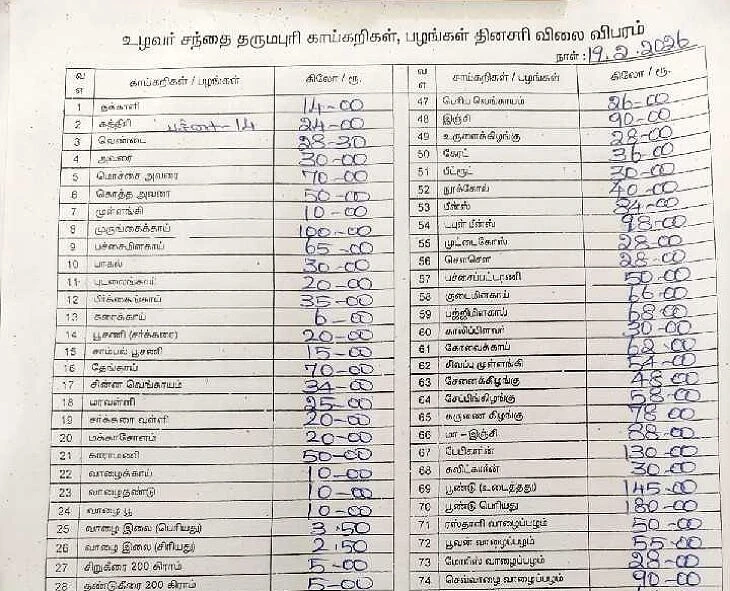 உழவர் சந்தை தருமபுரி காய்கறிகள், பழங்கள் தினசரி விலை விபரம்
நாள் : 19.2.2026
வ எ காய்கறிகள் / பழங்கள் கிலோ / ரூ.
1 தக்காளி 14-00
2 கத்திரி பச்சை-14 24-00
3 வெண்டை 28-30
4 அவரை 30-00
5 மொச்சை அவரை 70-00
6 கொத்த அவரை 50-00
7 முள்ளங்கி 10-00
8 முருங்கைக்காய் 100-00
9 பச்சைமிளகாய் 65-00
10 பாகல் 30-00
11 புடலைங்காய் 20-00
12 பீர்க்கைங்காய் 35-00
13 சுரைக்காய் 6-00
14 பூசணி (சர்க்கரை) 20-00
15 சாம்பல் பூசணி 15-00
16 தேங்காய் 70-00
17 சின்ன வெங்காயம் 34-00
18 மரவள்ளி 25-00
19 சர்க்கரை வள்ளி 20-00
20 மக்காசோளம் 20-00
21 காராமணி 50-00
22 வாழைக்காய் 10-00
23 வாழைதண்டு 10-00
24 வாழை பூ 10-00
25 வாழை இலை (பெரியது) 3-50
26 வாழை இலை (சிறியது) 2-50
27 சிறுகீரை 200 கிராம் 5-00
28 தண்டுகீரை 200 கிராம் 5-00
வ எ காய்கறிகள் / பழங்கள் கிலோ / ரூ.
47 பெரிய வெங்காயம் 26-00
48 இஞ்சி 90-00
49 உருளைக்கிழங்கு 28-00
50 கேரட் 36-00
51 பீட்ரூட் 30-00
52 நூக்கோல் 40-00
53 பீன்ஸ் 24-00
54 டபுள் பீன்ஸ் 98-00
55 முட்டைகோஸ் 28-00
56 சௌசௌ 28-00
57 பச்சைப்பட்டாணி 50-00
58 குடைமிளகாய் 66-00
59 பஜ்ஜிமிளகாய் 68-00
60 காலிப்பிளவர் 30-00
61 கோவைக்காய் 62-00
62 சிவப்பு முள்ளங்கி 54-00
63 சேனைக்கிழங்கு 48-00
64 சேப்பங்கிழங்கு 58-00
65 கருணை கிழங்கு 78-00
66 மா - இஞ்சி 88-00
67 பேபிகார்ன் 130-00
68 சுவீட்கார்ன் 30-00
69 பூண்டு (உடைத்தது) 145-00
70 பூண்டு பெரியது 180-00
71 ரஸ்தாளி வாழைப்பழம் 50-00
72 பூவன் வாழைப்பழம் 55-00
73 மோரிஸ் வாழைப்பழம் 28-00
74 செவ்வாழை வாழைப்பழம் 90-00